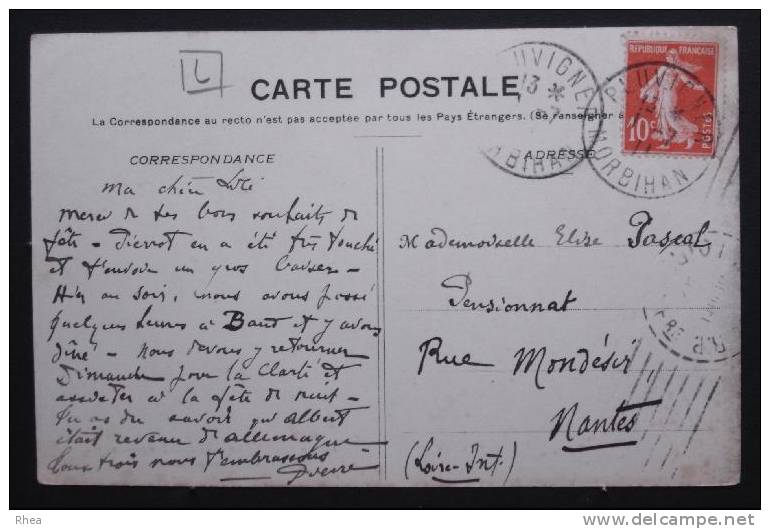 L
CARTE POSTALE
La Correspondance au recto n'est pas acceptée par tous les Pays Étrangers. (Se renseigner à
CORRESPONDANCE
ADRESSE
REPUBLIQUE FRANÇAISE
10c
POSTES
PLUVIGNER
MORBIHAN
PLUVIGNER
MORBIHAN
Ma chère
Merci de tes bons souhaits de
fête - Pierrot en a été très touché
et t'envoie un gros baiser -
Hier au soir, nous avons passé
quelques heures à Baud et y avons
dîné - Nous devons y retourner
Dimanche pour la Clarté et
assister à la fête de nuit -
Tu as du savoir qu'Albert
était revenu d'allemagne
Tous trois nous t'embrassons
Pierre
Mademoiselle Elise Pascal
Pensionnat
Rue Mondésir
Nantes
(Loire-Inf.)
Rhea
www.delcampe.net